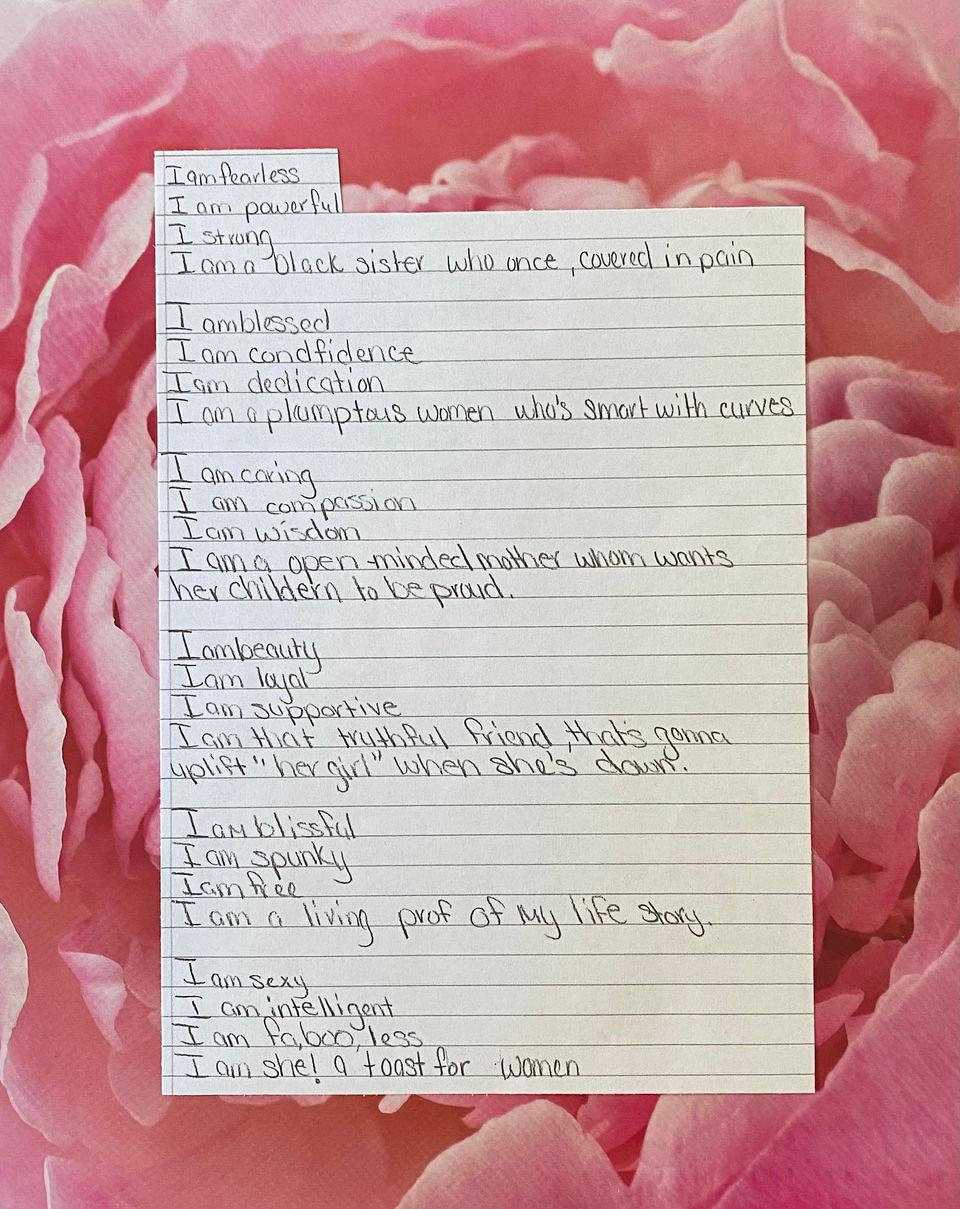 I am fearless
I am powerful
I strong
I am a black sister who once , covered in pain
I am blessed
I am condfidence
I am dedication
I am a plumptous women who's smart with curves
I am caring
I am compassion
I am wisdom
I am a open-minded mother whom wants
her childern to be proud.
I am beauty
I am loyal
I am supportive
I am that truthful friend, that's gonna
uplift "her girl" when she's down.
I am blissful
I am spunky
I am free
I am a living prof of my life story.
I am sexy
I am intelligent
I am fa,boo,less
I am she! a toast for women